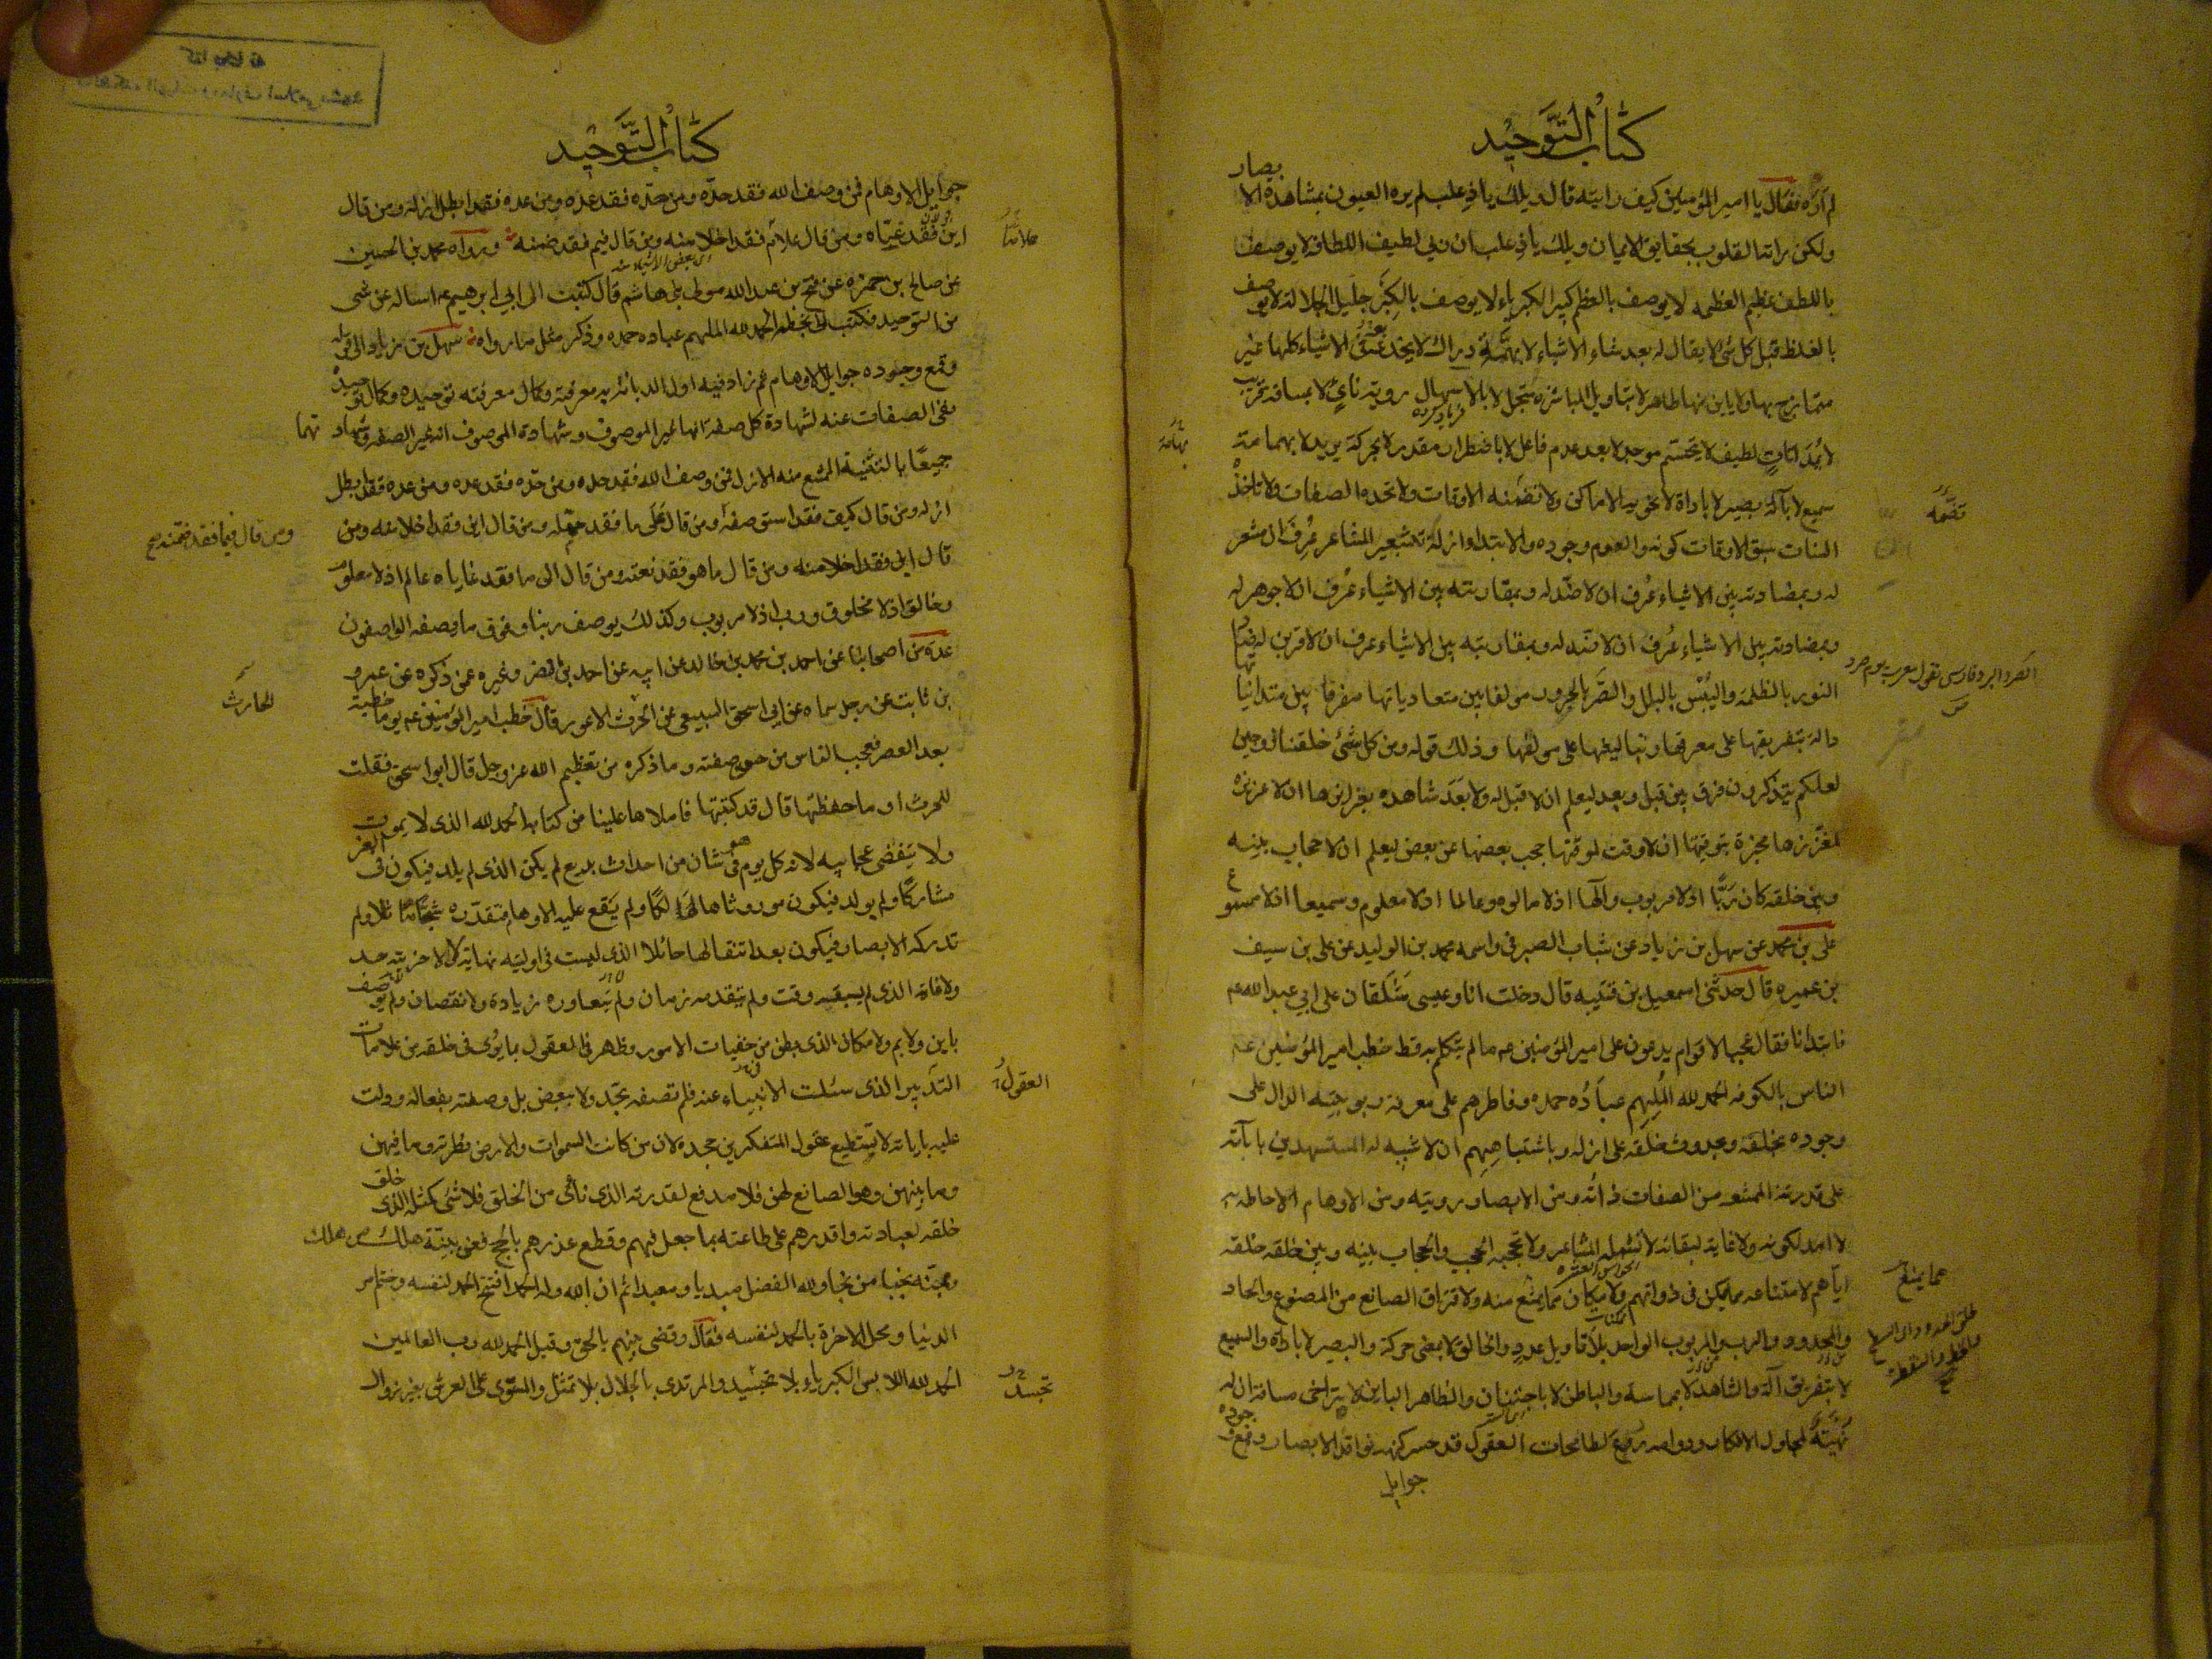 كتاب التوحيد
لم اره فقال يا امير المؤمنين كيف رايته قال ويلك يا ذعلب لم يره العيون بمشاهدة الابصار
ولكن راته القلوب بحقايق الايمان ويلك يا ذعلب ان ربي لطيف اللطافة لا يوصف
باللطف عظيم العظمه لا يوصف بالعظم كبير الكبرياء لا يوصف بالكبر جليل الجلالة لا يوصف
بالغلظ قبل كل شئ لا يقال له بعد شاء الاشياء لا بهمة دراك لا بخديعة في الاشياء كلها غير
متمازج بها ولا باين منها ظاهر لا بتاويل المباشرة متجل لا بالاستهلال روية ناء لا بمسافة قريب
لا بمداناة لطيف لا بتجسم موجود لا بعد عدم فاعل لا باضطرار مقدر لا بحركة يريد لا بهمامة
سميع لا بآلة بصير لا باداة لا تحويه الاماكن ولا تضمنه الاوقات ولا تحده الصفات ولا تاخذه
السنات سبق الاوقات كونه والعدم وجوده والابتداء ازله بتشعيره المشاعر عرف ان لا مشعر
له وبمضادته بين الاشياء عرف ان لا ضد له وبمقارنته بين الاشياء عرف ان لا جوهر له
وبمضادته بين الاشياء عرف ان لا ضد له وبمقارنته بين الاشياء عرف ان لا قرين له ضاد
النور بالظلمة واليبس بالبلل والصرد بالحرور مولفا بين متعادياتها مفرقا بين متدانياتها
دالة بتفريقها على مفرقها وبتاليفها على مولفها وذلك قوله ومن كل شئ خلقنا زوجين
لعلكم تتذكرون ففرق بين قبل وبعد ليعلم ان لا قبل له ولا بعد شاهدة بغرايزها ان لا غريزة
لمغرزها مخبرة بتوقيتها ان لا وقت لموقتها حجب بعضها عن بعض ليعلم ان لا حجاب بينه
وبين خلقه كان ربا اذ لا مربوب والها اذ لا مالوه وعالما اذ لا معلوم وسميعا اذ لا مسموع
على بن محمد عن سهل بن زياد عن شباب الصيرفى واسمه محمد بن الوليد عن على بن سيف
بن عميرة قال حدثنى اسمعيل بن قتيبه قال دخلت انا وعيسى شلقان على ابي عبد الله عم
فابتدانا فقال عجبا لاقوام يدعون على امير المؤمنين عم ما لم يتكلم به قط خطب امير المؤمنين عم
الناس بالكوفة الحمد لله الملهم عباده حمده وفاطرهم على معرفة ربوبيته الدال على
وجوده بخلقه وبحدوث خلقه على ازله وباشتباههم ان لا شبه له المستشهد باياته
على قدرته الممتنعه من الصفات ذاته ومن الابصار رويته ومن الاوهام الاحاطة به
لا امد لكونه ولا غاية لبقائه لا تشمله المشاعر ولا تحجبه الحجب والحجاب بينه وبين خلقه خلقه
اياهم لامتناعه مما يمكن فى ذواتهم ولامكان مما يمتنع منه ولافتراق الصانع من المصنوع والحاد
والمحدود والرب والمربوب الواحد بلا تاويل عدد والخالق لا بمعنى حركة والبصير لا باداة والسميع
لا بتفريق آلة والشاهد لا بمماسة والباطن لا باجتنان والظاهر الباين لا بتراخى مسافة ازله
نهية لمجاول الافكار ودوامه ردع لطامحات العقول قد حسر كنهه نوافذ الابصار وقمع وجوده
جوايل
تضمنه
مما يمتنع
كتاب التوحيد
جوايل الاوهام فمن وصف الله فقد حده ومن حده فقد عده ومن عده فقد ابطل ازله ومن قال
اين فقد غياه ومن قال علام فقد اخلا منه ومن قال فيم فقد ضمنه ورواه محمد بن الحسين
عن صالح بن حمزه عن فتح بن عبد الله مولى بنى هاشم قال كتبت الى ابي ابرهيم عم اساله عن شى
من التوحيد فكتب الى بخطه الحمد لله الملهم عباده حمده وذكر مثل ما رواه سهل بن زياد الى قوله
وقمع وجوده جوايل الاوهام ثم زاد فيه اول الديانة به معرفته وكمال معرفته توحيده وكمال توحيده
نفى الصفات عنه لشهادة كل صفة انها غير الموصوف وشهادة الموصوف انه غير الصفة وشهادتهما
جميعا بالتثنية الممتنع منه الازل فمن وصف الله فقد حده ومن حده فقد عده ومن عده فقد ابطل
ازله ومن قال كيف فقد استوصفه ومن قال على ما فقد حمله ومن قال اين فقد اخلا منه ومن
ومن قال فيما فقد ضمنه صح
قال اين فقد اخلا منه ومن قال ما هو فقد نعته ومن قال الى ما فقد غاياه عالم اذ لا معلوم
وخالق اذ لا مخلوق ورب اذ لا مربوب وكذلك يوصف ربنا وفوق ما يصفه الواصفون
عدة من اصحابنا عن احمد بن محمد بن خالد عن ابيه عن احمد بن النضر وغيره عمن ذكره عن عمرو
بن ثابت عن رجل سماه عن ابي اسحق السبيعى عن الحرث الاعور قال خطب امير المؤمنين عم يوما خطبة
الحارث
بعد العصر فعجب الناس من حسن صفته وما ذكره من تعظيم الله عز وجل قال ابو اسحق فقلت
للحرث او ما حفظتها قال قد كتبتها فاملاها علينا من كتابه الحمد لله الذى لا يموت
ولا ينقضى عجايبه لانه كل يوم هو فى شان من احداث بديع لم يكن الذى لم يلد فيكون فى العز
مشاركا ولم يولد فيكون موروثا هالكا ولم يقع عليه الاوهام فتقدره شبحا ماثلا ولم
تدركه الابصار فيكون بعد انتقالها حائلا الذى ليست فى اوليته نهاية ولا لاخريته حد
ولا غاية الذى لم يسبقه وقت ولم يتقدمه زمان ولم يتعاوره زيادة ولا نقصان ولم يوصف
باين ولا بم ولا مكان الذى بطن من خفيات الامور وظهر فى العقول بما يرى فى خلقه من علامات
التدبير الذى سئلت الانبياء عنه فلم تصفه بحد ولا ببعض بل وصفته بفعاله ودلت
عليه باياته لا يستطيع عقول المتفكرين جحده لان من كانت السموات والارض فطرته وما فيهن
وما بينهن وهو الصانع لهن فلا مدفع لقدرته الذى نأى من الخلق فلا شئ كمثله الذى خلق
خلقه لعبادته واقدرهم على طاعته بما جعل فيهم وقطع عذرهم بالحجج فعن بينة هلك من هلك
وبمنه نجا من نجا ولله الفضل مبديا ومعيدا ثم ان الله وله الحمد افتتح الحمد لنفسه وختم امر
الدنيا ومحل الاخرة بالحمد لنفسه فقال وقضى بينهم بالحق وقيل الحمد لله رب العالمين
الحمد لله اللابس الكبرياء بلا تجسيد والمرتدى بالجلال بلا تمثل والمستوى على العرش بغير زوال
العقول
تجسد